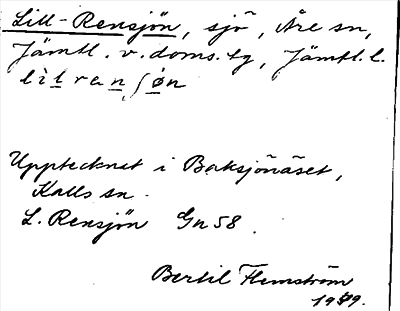 Lill-Rensjön, sjö, Åre sn,
Jämtl. v. doms. tg, Jämtl. l.
Upptecknat i Baksjönäset,
Kalls sn.
L. Rensjön Gn 58.
Bertil Flemström